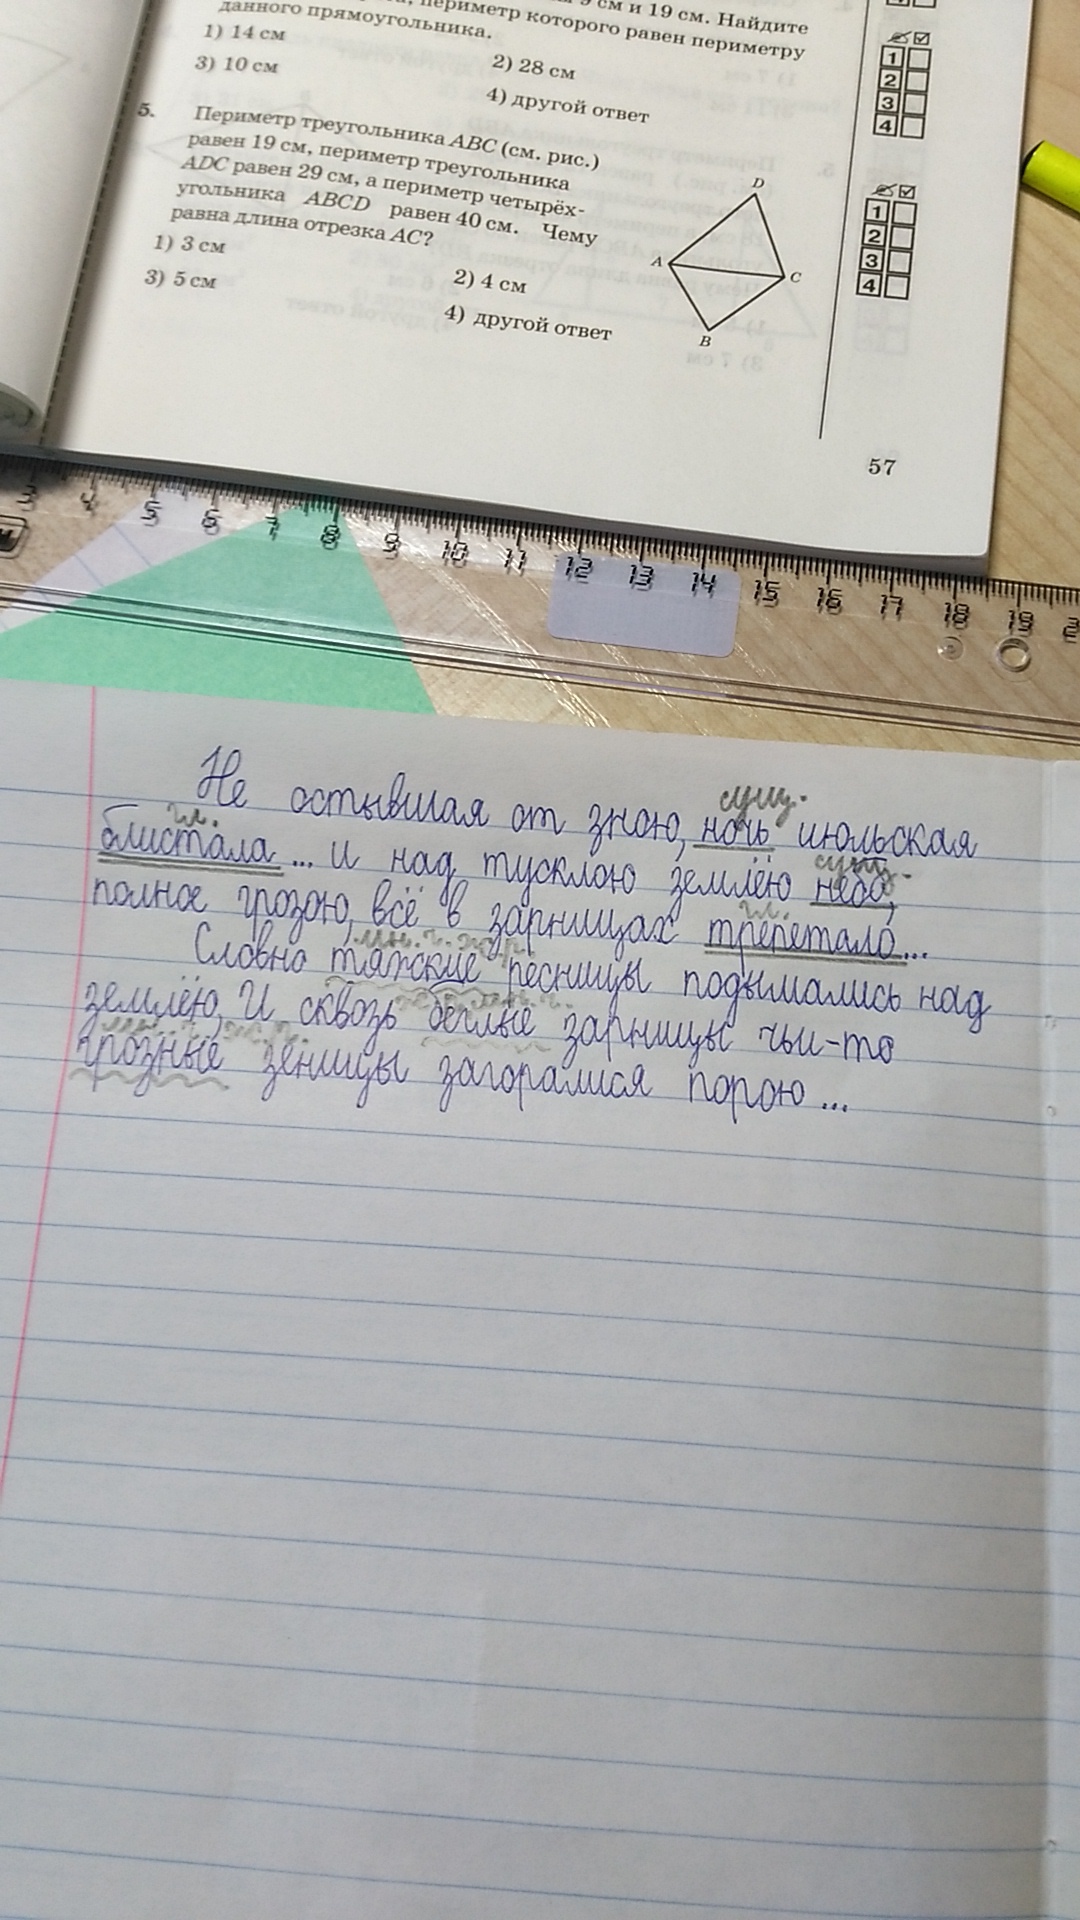 см и 19 см. Найдите
периметр которого равен периметру
данного прямоугольника.
1) 14 см
2) 28 см
3) 10 см
4) другой ответ
5. Периметр треугольника ABC (см. рис.)
равен 19 см, периметр треугольника
ADC равен 29 см, а периметр четырёх-
угольника ABCD равен 40 см. Чему
равна длина отрезка AC?
1) 3 см
2) 4 см
3) 5 см
4) другой ответ
D
A
C
B
1
2
3
4
1
2
3
4
57
3 4 5 6 7 8 9 10 11 12 13 14 15 16 17 18 19
сущ.
Не остывшая от зною, ночь июльская
гл. сущ.
блистала ... и над тусклою землёю небо,
гл.
полное грозою, всё в зарницах трепетало...
мн. ч.
Словно тяжские ресницы подымались над
землёю, И сквозь беглые зарницы чьи-то
грозные зеницы загоралися порою ...